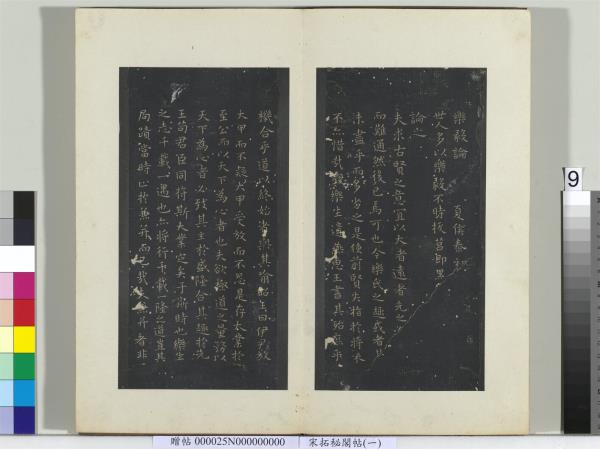 樂毅論 夏侯泰初
世人多以樂毅不時拔莒即墨
論之
夫求古賢之意宜以大者遠者先之必
而難通然後已焉可也今樂氏之趣或者其
未盡乎而多劣之是使前賢失指於將來
不亦惜哉觀樂生遺燕惠王書其殆庶乎
機合乎道以終始者與其喻昭王曰伊尹放
大甲而不疑大甲受放而不怨是存大業於
至公而以天下為心者也夫欲極道之量務以
天下為心者必致其主於盛隆合其趣於先
王苟君臣同符斯大業定矣于斯時也樂生
之志千載一遇也亦將行千載一隆之道豈其
局蹟當時止於兼并而已哉夫兼并者非
9
贈帖 000025N000000000 宋拓秘閣帖(一)